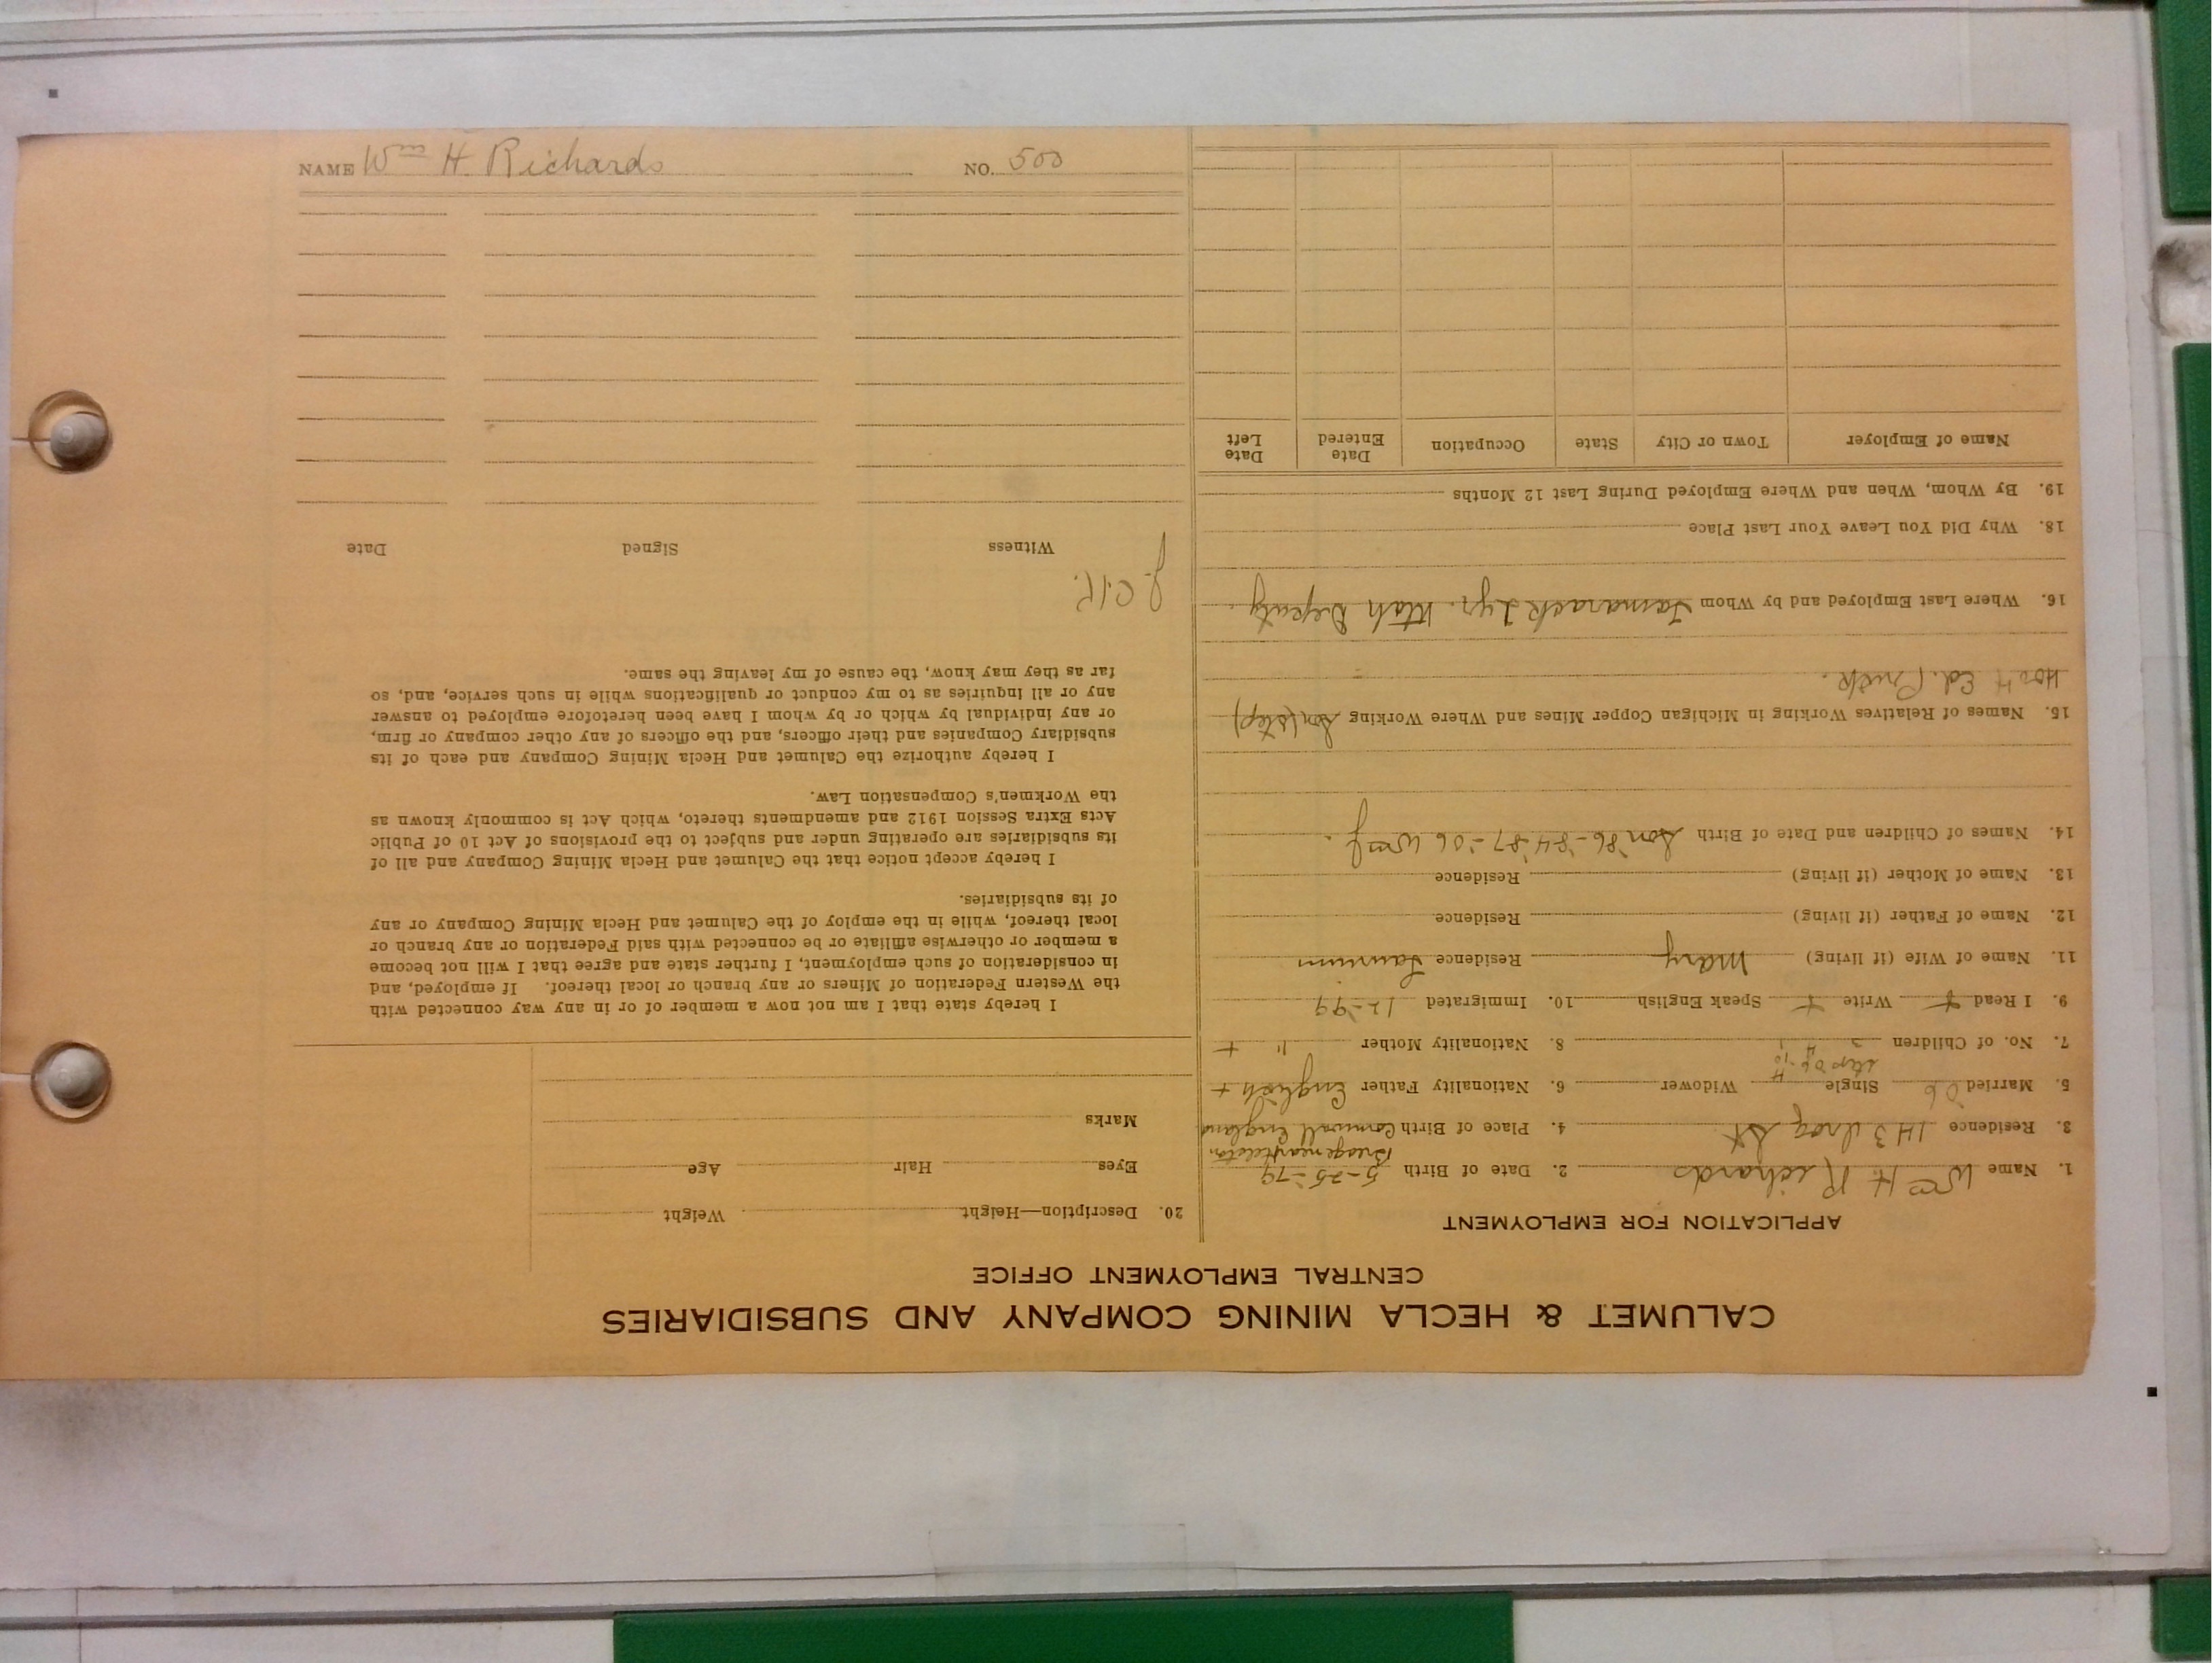 CALUMET & HECLA MINING COMPANY AND SUBSIDIARIES
CENTRAL EMPLOYMENT OFFICE
APPLICATION FOR EMPLOYMENT
1. Name Wm H Richards 2. Date of Birth 5-25-79
3. Residence 143 Iroq St 4. Place of Birth Cornwall England
5. Married 06 Single Widower 6. Nationality Father English +
step
7. No. of Children 8. Nationality Mother " +
9. I Read + Write + Speak English 10. Immigrated 12-99
11. Name of Wife (if living) Mary Residence Laurium
12. Name of Father (if living) Residence
13. Name of Mother (if living) Residence
14. Names of Children and Date of Birth Son 86-84-87-06
15. Names of Relatives Working in Michigan Copper Mines and Where Working Son (step)
Ed.
16. Where Last Employed and by Whom Tamarack 2 yr. Utah Deputy.
18. Why Did You Leave Your Last Place
19. By Whom, When and Where Employed During Last 12 Months
Name of Employer Town or City State Occupation Date Entered Date Left
20. Description—Height Weight
Eyes Hair Age
Marks
I hereby state that I am not now a member of or in any way connected with
the Western Federation of Miners or any branch or local thereof. If employed, and
in consideration of such employment, I further state and agree that I will not become
a member or otherwise affiliate or be connected with said Federation or any branch or
local thereof, while in the employ of the Calumet and Hecla Mining Company or any
of its subsidiaries.
I hereby accept notice that the Calumet and Hecla Mining Company and all of
its subsidiaries are operating under and subject to the provisions of Act 10 of Public
Acts Extra Session 1912 and amendments thereto, which Act is commonly known as
the Workmen's Compensation Law.
I hereby authorize the Calumet and Hecla Mining Company and each of its
subsidiary Companies and their officers, and the officers of any other company or firm,
or any individual by which or by whom I have been heretofore employed to answer
any or all inquiries as to my conduct or qualifications while in such service, and, so
far as they may know, the cause of my leaving the same.
J.C.R.
Witness Signed Date
NAME Wm H Richards NO. 500